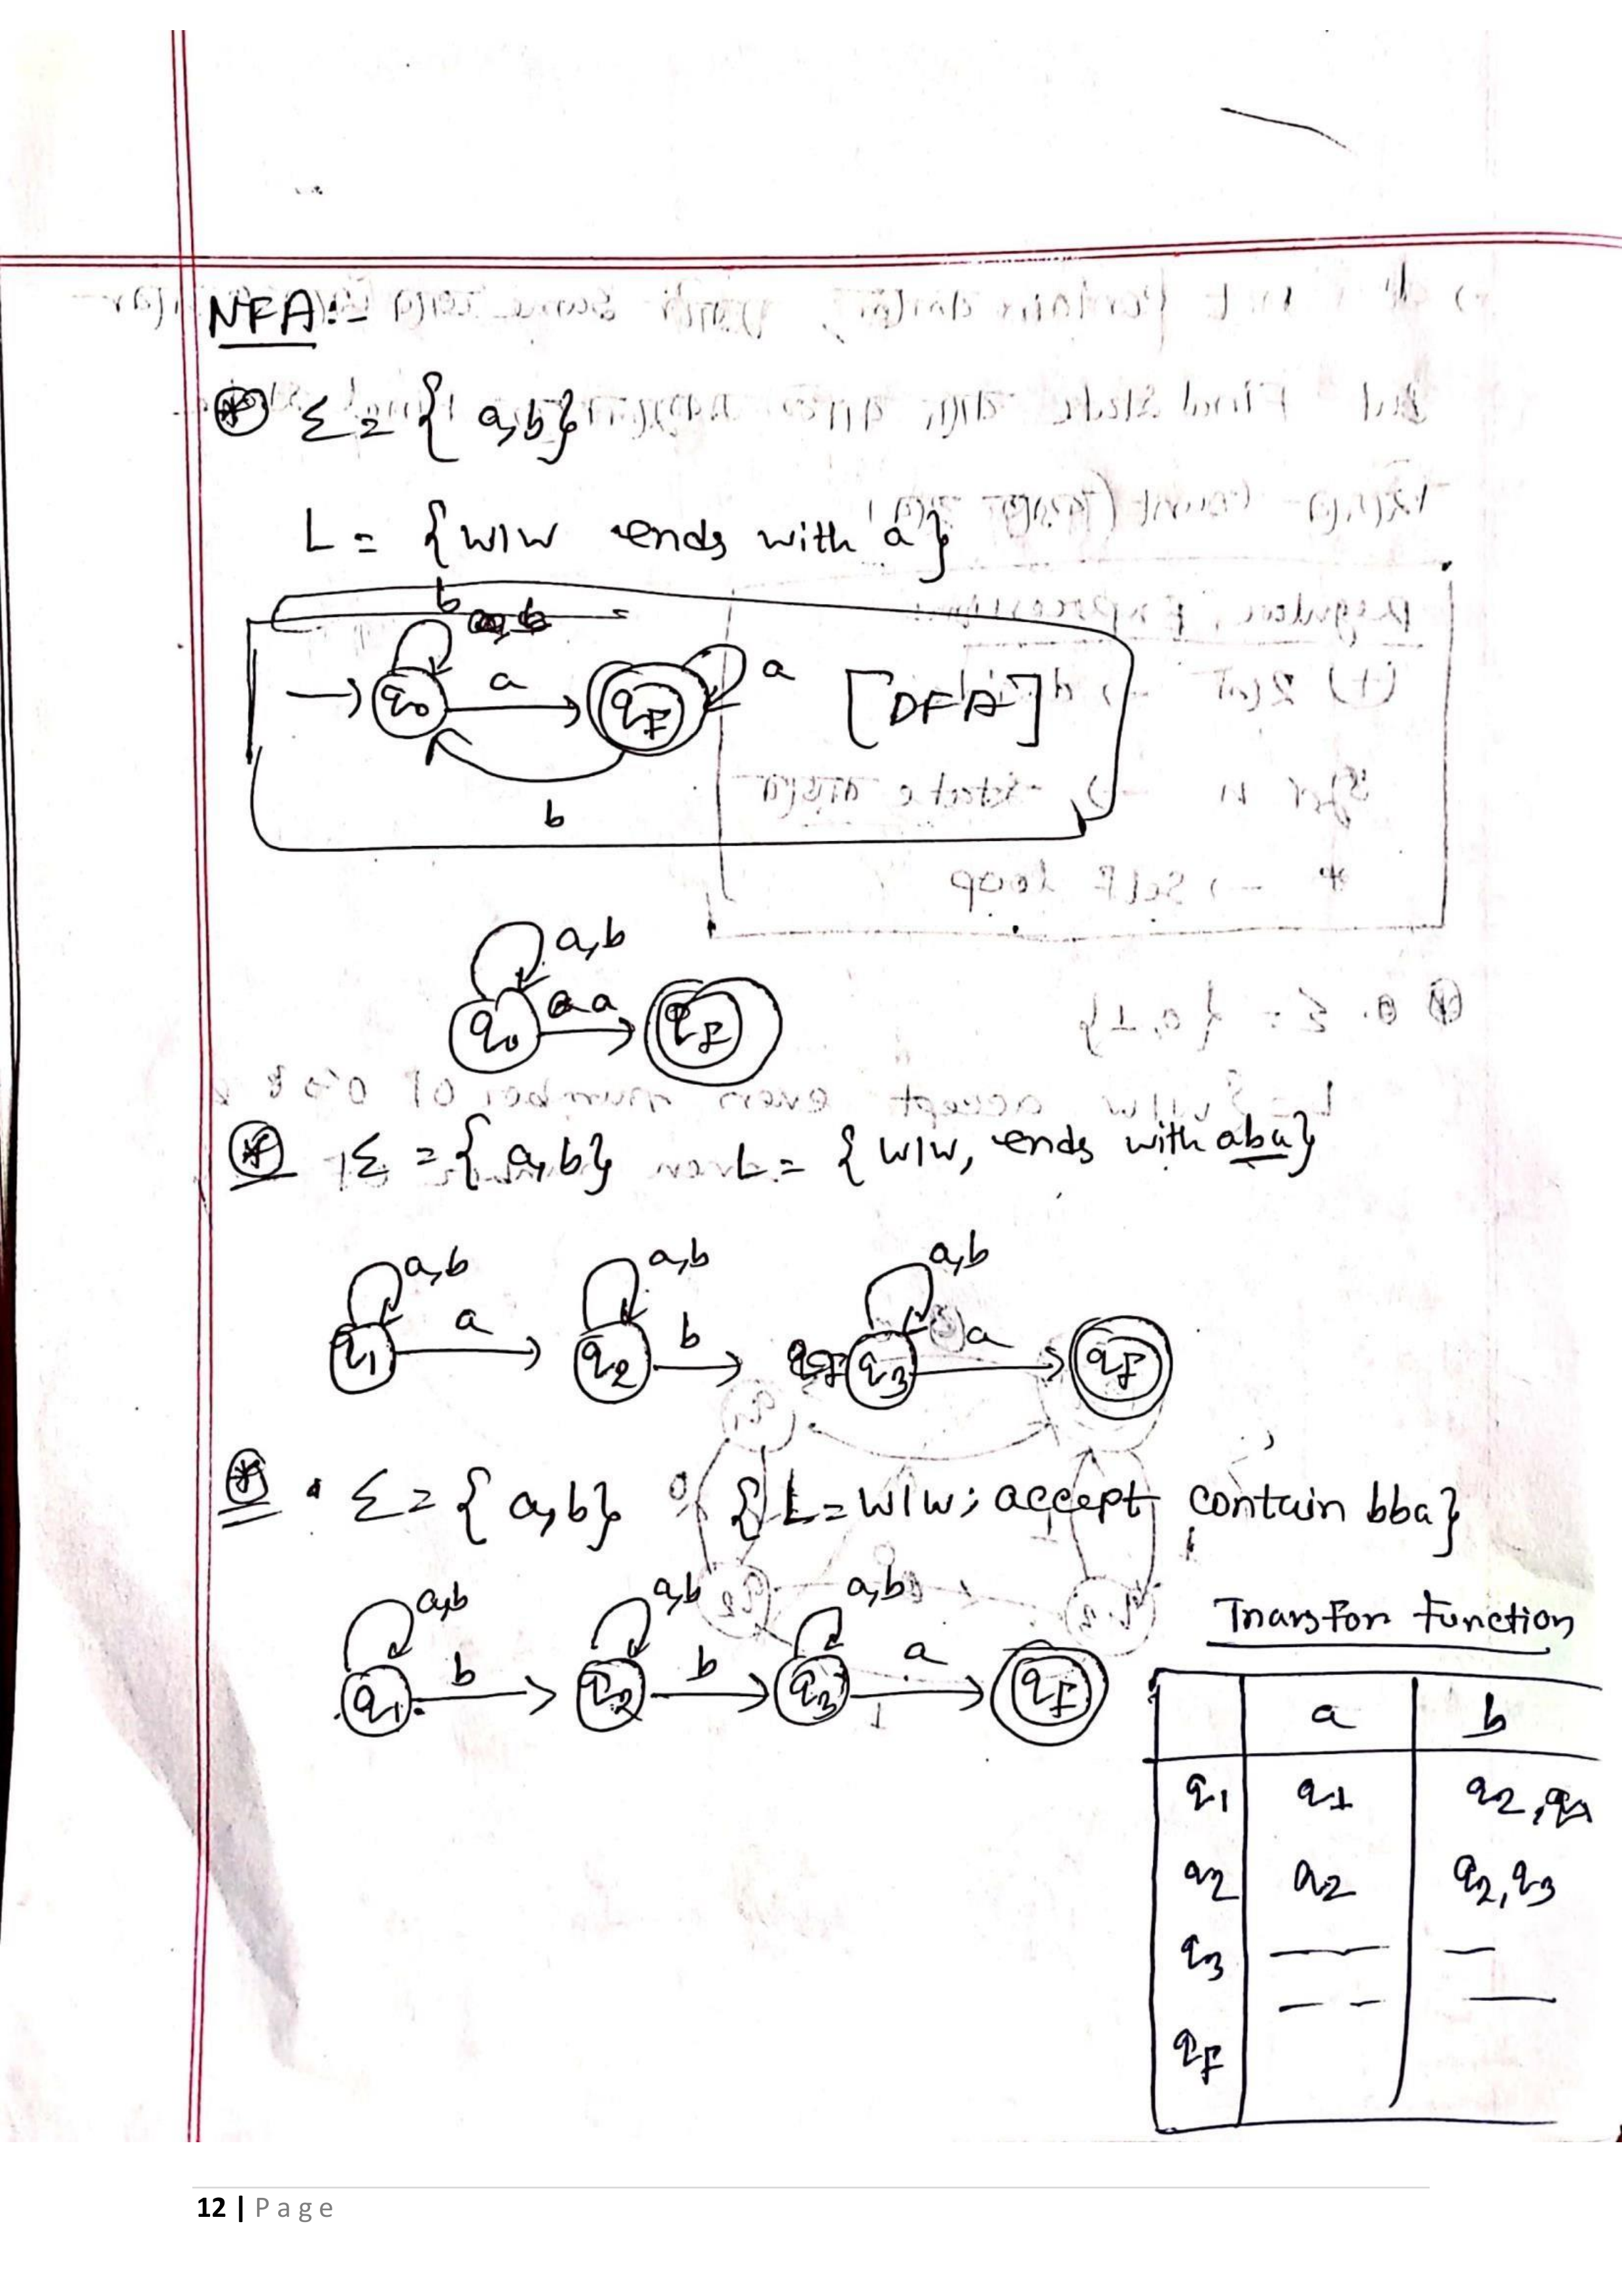 NFA:-
⊛ Σ = {a,b}
L = {w|w ends with a}
b
q0 a qF a [DFA]
b
a,b
q0 a qF
⊛ Σ = {a,b} L = {w|w, ends with aba}
a,b a,b a,b
q1 a q2 b q3 a qF
⊛ . Σ = {a,b} {L = w|w; accept contain bba}
a,b a,b a,b
q1 b q2 b q3 a qF
Transfor function
a b
q1 q1 q2, q1
q2 q2 q2, q3
q3 — —
— — —
qF
12 | Page